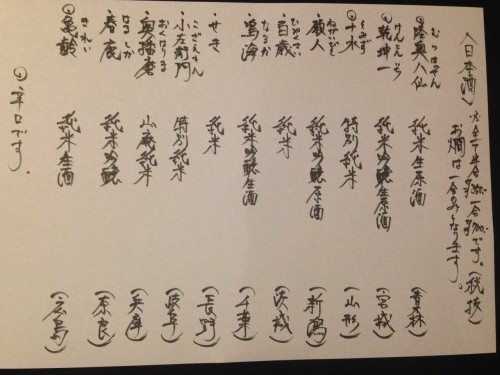 〈日本酒〉 ※全て半合 一合です。(税抜)
お燗は一合のみとなります。
むつはっせん
・陸奥八仙 純米生原酒 (青森)
けんこんいち
乾坤一 純米吟醸生原酒 (宮城)
十水 特別純米 (山形)
ねがいびと
・願人 純米吟醸原酒 (新潟)
ひゃくさい
・百歳 純米 (茨城)
なるか
・鳴海 純米吟醸生酒 (千葉)
・せき 純米 (長野)
こざえもん
・小左衛門 特別純米 (岐阜)
おくはりま
・奥播磨 山廃純米 (兵庫)
はるしか
・春鹿 純米吟醸 (奈良)
きれい
亀齢 純米生酒 (広島)
辛口です。